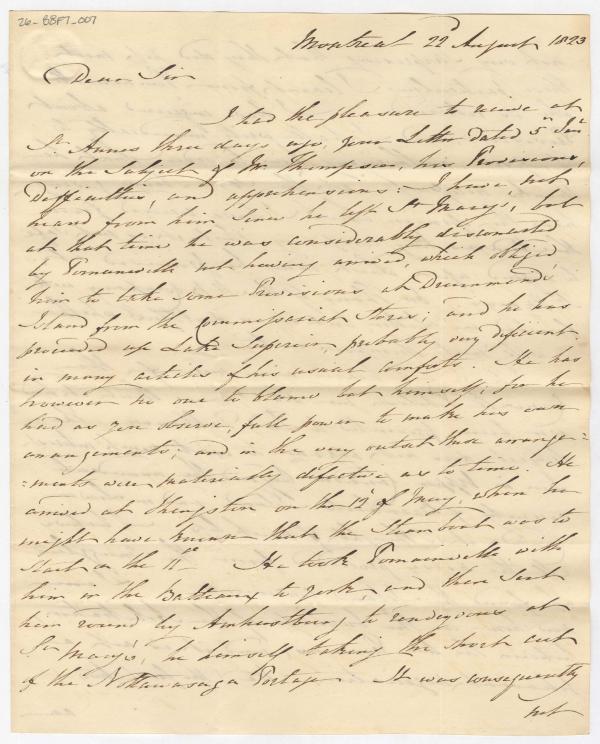 26-BBF7_007
Montreal 22d August 1823
Dear Sir
I had the pleasure to receive at
St. Annes three days ago, your Letter dated 5th
on the Subject of Mr Thompson, his Provisions,
Difficulties, and apprehensions: I have not
heard from him since he left St Mary's, but
at that time he was considerably disconcerted
by not having arrived, which obliged
him to take some Provisions at Drummonds
Island from the Commissariat Stores; and he has
proceeded up Lake Superior, probably very deficient
in many articles of his usual comforts. He has
however no one to blame but himself; for he
had as you observe, full power to make his own
arrangements; and in the very outset those arrange=
=ments were materially defective as to time. He
arrived at Kingston on the 12th of May, when he
might have known that the Steam boat was to
start on the 11th He took with
him in the Batteaux to York, and then sent
him round by Amherstburg to rendezvous at
St Mary's, he himself taking the short cut
of the Nottawasaga Portage. It was consequently
not